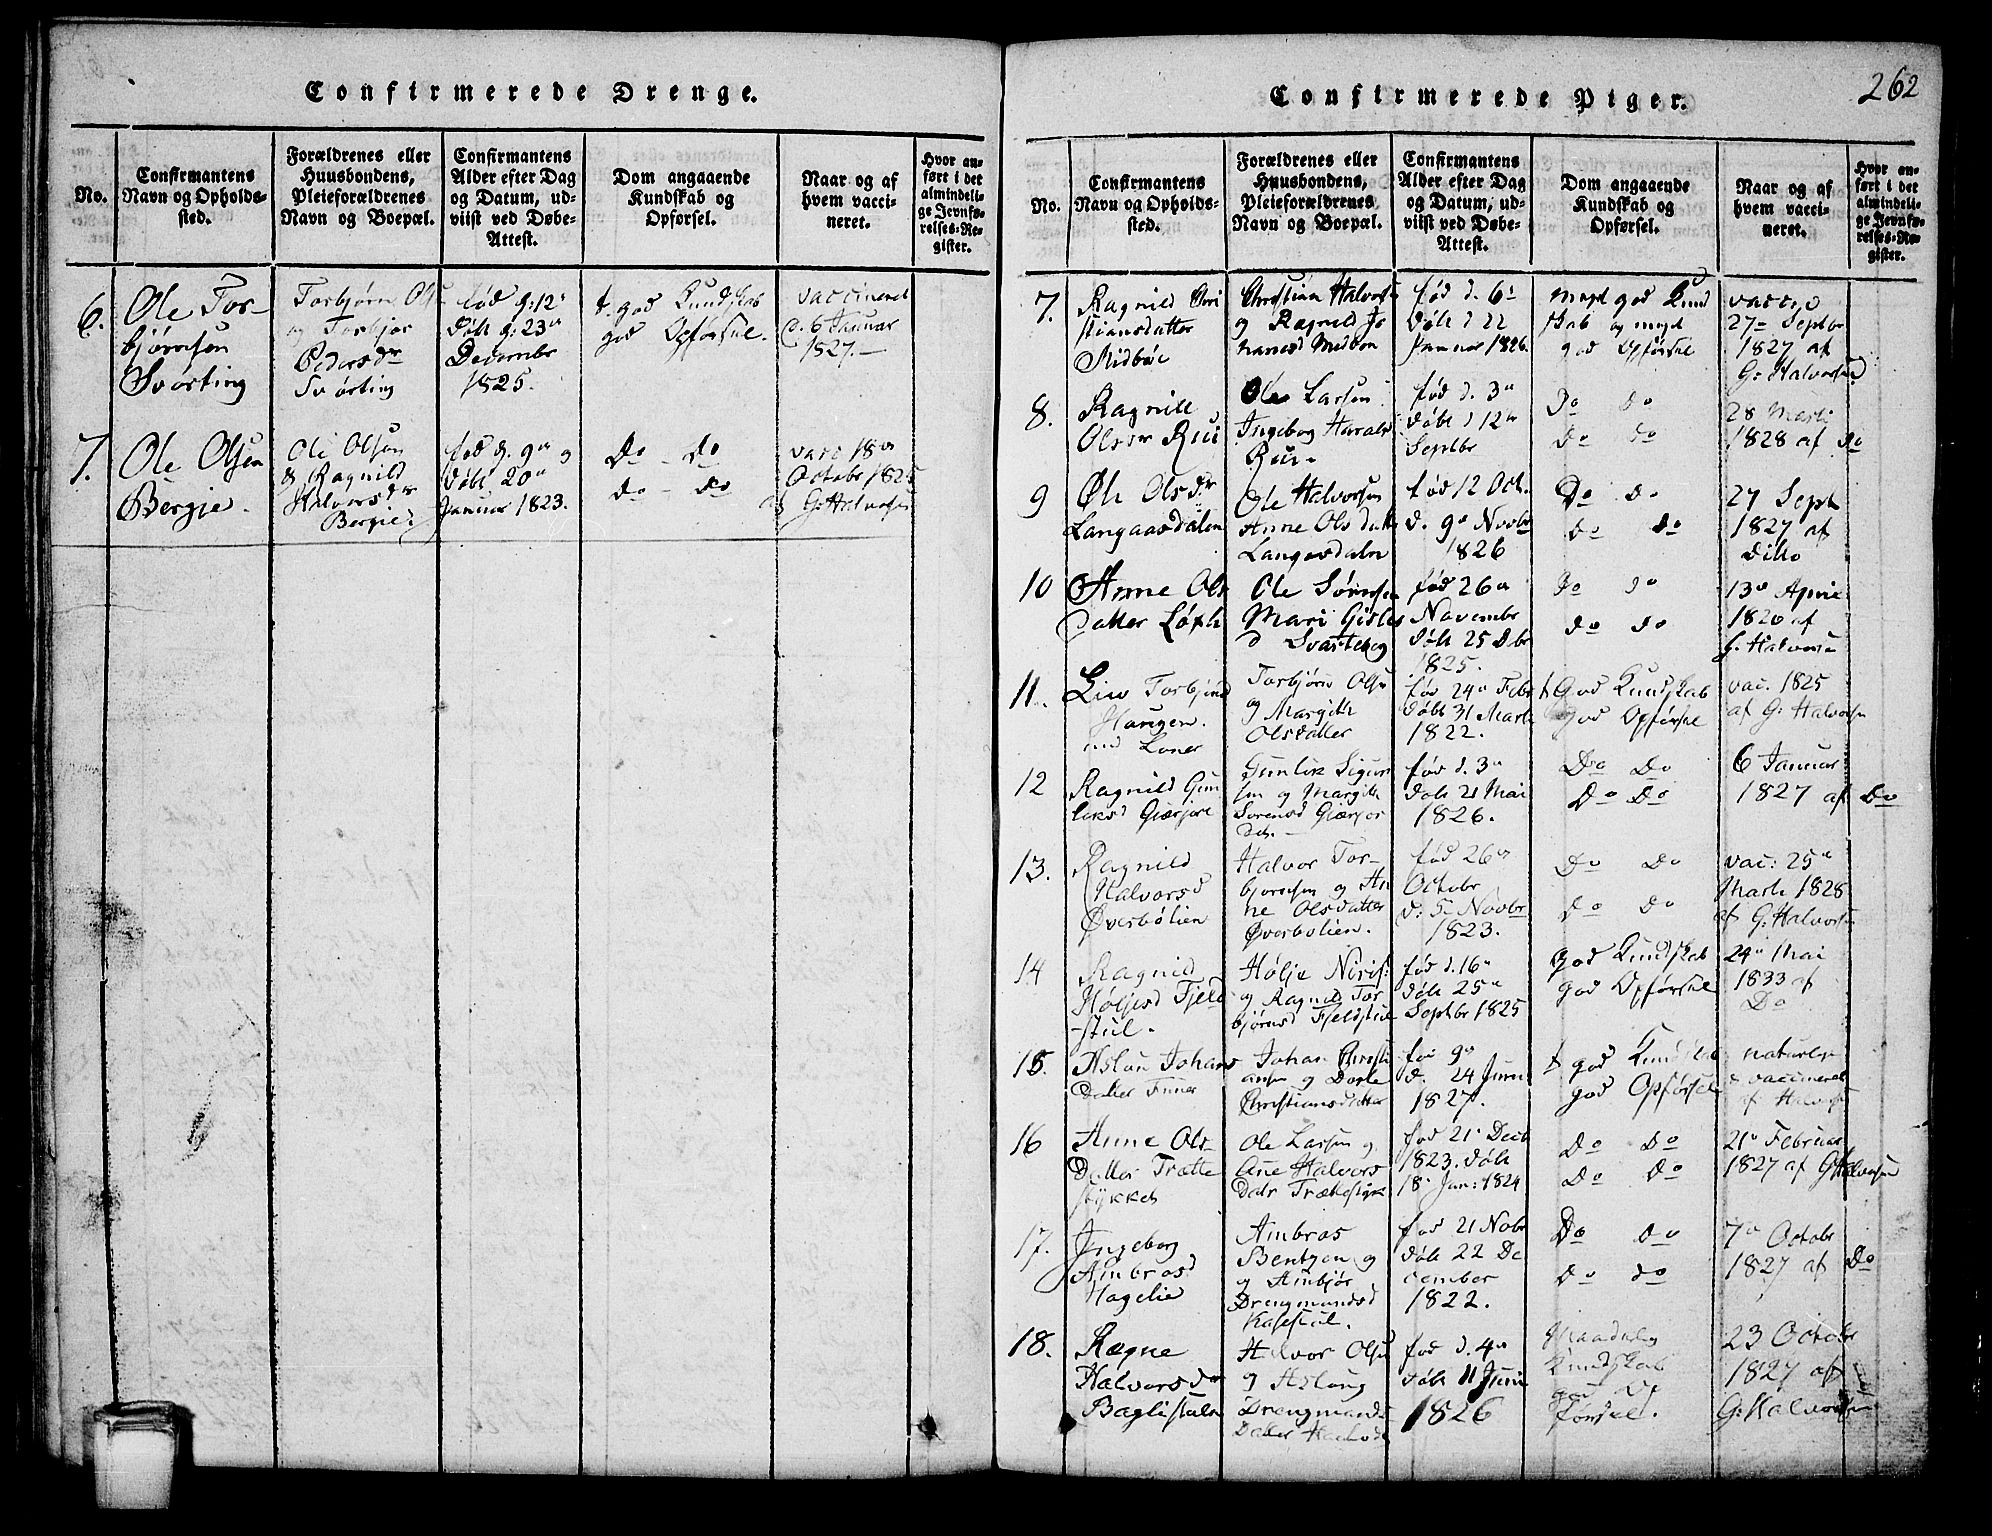 Confirmerede Drenge.
No.
Confirmantens
Navn og Opholds-
sted.
Forældrenes eller
Huusbondens,
Pleieforældrenes
Navn og Boepæl.
Confirmantens
Alder efter Dag
og Datum, ud-
viist ved Døbe-
Attest.
Dom angaaende
Kundskab og
Opførsel.
Naar og af
hvem vacci-
neret.
Hvor an-
ført i det
almindeli-
ge Jevnfø-
relses-Re-
gister.
6.
Ole Tor-
bjørnsen
Svørting
Torbjørn Ols
og Torbjør
Pedersdr
Svørting
fød d: 12te
Døbt d: 23de
Decembr
1825.
t. god Kundskab
god Opførsel.
vaccineret
d. 6 Januar
1827.—
7.
Ole Olsen
Bergie.
Ole Olsen
& Ragnild
Halvorsdr
Bergie.
fød d. 9de og
døbt 20de
Januar 1823.
Do - Do
do - do
vacc 18de
Octobr 1825
af G: Halvorsen
Confirmerede Piger.
262
No.
Confirmantens
Navn og Opholds-
sted.
Forældrenes eller
Huusbondens,
Pleieforældrenes
Navn og Boepæl.
Confirmantens
Alder efter Dag
og Datum, ud-
viist ved Døbe-
Attest.
Dom angaaende
Kundskab og
Opførsel.
Naar og af
hvem vacci-
neret.
Hvor an-
ført i det
almindeli-
ge Jevnfø-
relses-Re-
gister.
7.
Ragnild Chri
stiansdatter
Midbøe
Christian Halvors
og Ragnild Jo
hanesd Midbøe
fød d. 6te
Døbt d 22
Januar 1826.
Meget god Kund
skab og meget
god Opførsel
vacc:
27de Septbr
1827 af
G: Halvorsen
8.
Ragnild
Olsdr Rui
Ole Larsen
Ingeborg Haralds
Rui
fød d. 3de
døbt d 12te
Septbr
Do do
Do do
28 Marti
1828 af do
9
Olsdr
Langaasdalen
Ole Halvorsen
Anne Olsdatter
Langaasdalen
fød 12 Oct.
d. 9de Novbr
1826
Do do
do do
27 Sept
1827 af
ditto
10
Anne Ols
datter
Ole Sørensen
Mari
d
fød 26de
Novembr
døbt 25 Dbr
1825.
Do do
do do
13de April
af
G: Halvorsen
11.
Liv Torbjørnsd
Haugen
Torbjørn Olsen
og Margith
Olsdatter
fød 24de Febr
døbt 31 Marti
1822.
t God Kundskab
god Opførsel
vac. 1825
af G: Halvorsen
12
Ragnild Gun
leksd
Gunlek Sigurd
sen og Margith
Sørensd
fød d. 3de
døbt 21 Mai
1826.
Do Do
Do Do
6 Januar
1827 af Do
13.
Ragnild
Halvorsd
Øverbølien
Halvor Tor-
bjørnsen og An
ne Olsdatter
Øverbølien.
fød 26de
Octobr
d: 5te Novbr
1823.
Do Do
Do Do
vac: 25de
Marti 1828
af G: Halvorsen
14
Ragnild
Høljesd Fjeld
stul.
Hølje Niris:
og Ragnild Tor
bjørnsd Fjeldstul
fød d. 16de
døbt 25de
Septbr 1825
god Kundskab
god Opførsel
24de Mai
1833 af
Do
15.
Aslau Johans
datter
Johan Christi
ansen og Dorte
Christiansdatter
fød 9de
d. 24 Juni
1827.
t god Kundskab
god Opførsel
naturlige
& vaccineret
af Halvorsen
16
Anne Ols
datter Trætte
stykket
Ole Larsen og
Ane Halvors
datr Trættestyk
fød 21 Decb
1823. døbt
18de Jan: 1824
Do Do
Do Do
21de Februar
1827 af G Halvorsen
17.
Ingeborg
Ambrosd
Hagelie
Ambros
Bentsen og
og Ambjør
Drengmandsd
Kasestul.
fød 21 Nobr
døbt 22 De
cember
1822.
Do do
Do do
7de Octobr
1827 af Do
18.
Rægne
Halvorsdr
Baglistuln
Halvor Olsen
og Aslaug
Drengmands
datter
fød d. 4de
døbt 11 Juni
1826
Maadelig
Kundskab
god Op
førsel.
23 Octobr
1827 af
G: Halvorsen